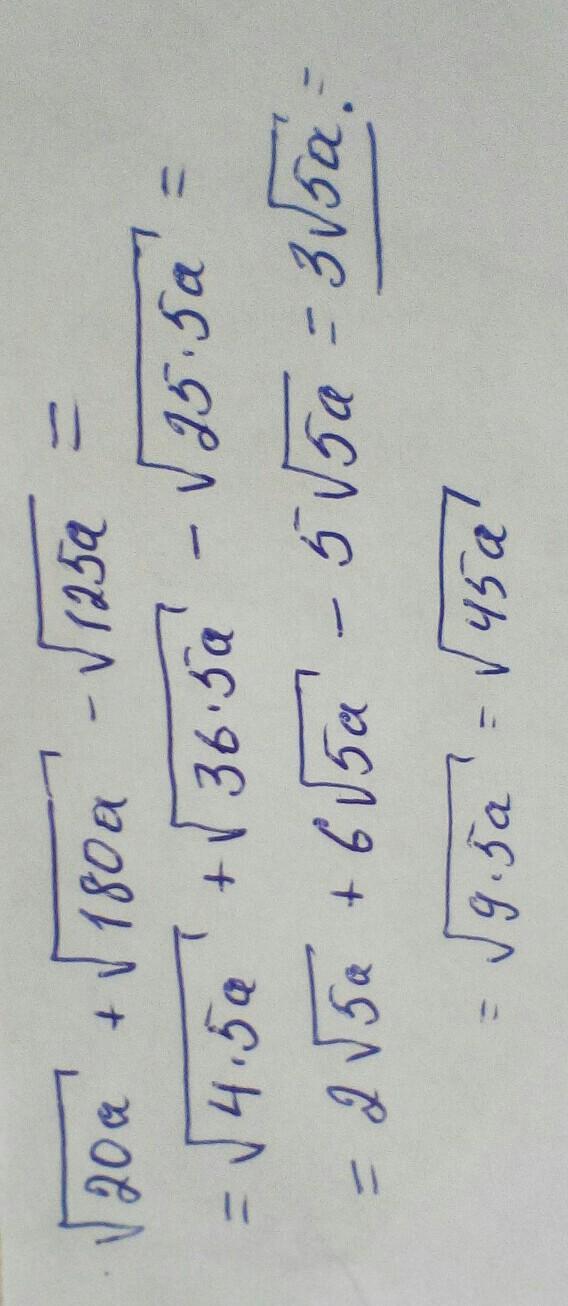 √20a + √180a - √125a =
= √4·5a + √36·5a - √25·5a =
= 2√5a + 6√5a - 5√5a = 3√5a. =
= √9·5a = √45a